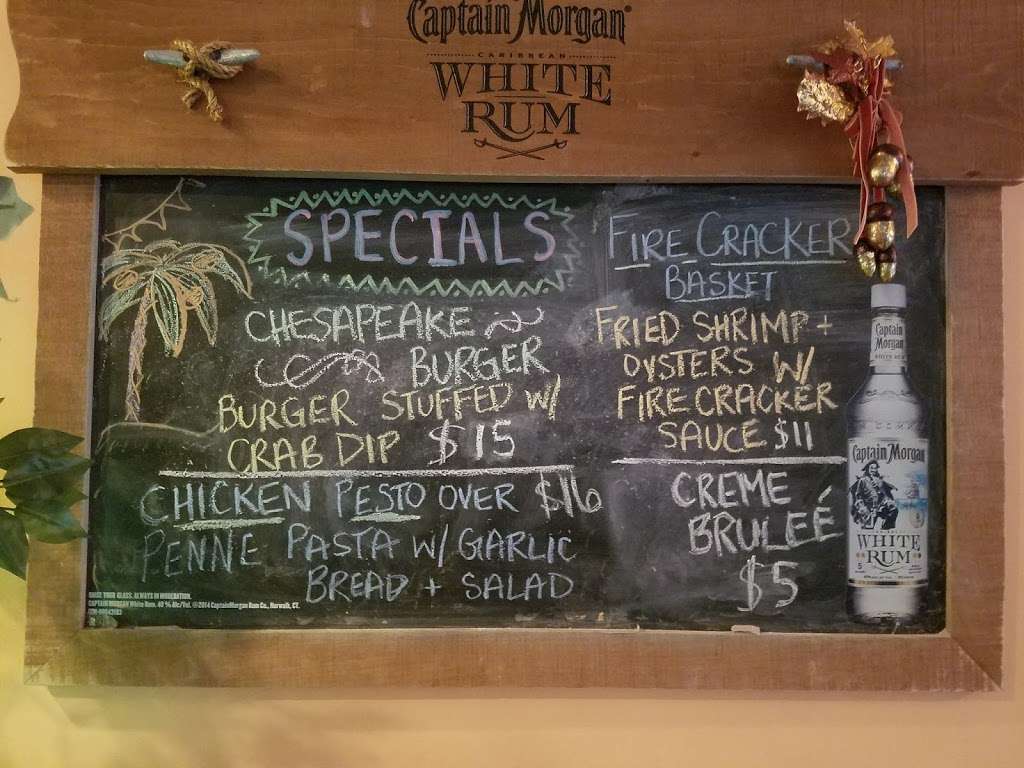 Captain Morgan®
CARIBBEAN
WHITE
RUM
SPECIALS
CHESAPEAKE
BURGER
BURGER STUFFED W/
CRAB DIP $15
CHICKEN PESTO OVER $16
PENNE PASTA W/ GARLIC
BREAD + SALAD
FIRE CRACKER
BASKET
FRIED SHRIMP +
OYSTERS W/
FIRECRACKER
SAUCE $11
CREME
BRULEÉ
$5
Captain
Morgan
WHITE RUM
Captain Morgan
WHITE
RUM
YOUR GLASS. ALWAYS IN MODERATION.
CAPTAIN MORGAN White Rum. 40 % Alc/Vol. ©2014 Captain Morgan Rum Co., Norwalk, CT.